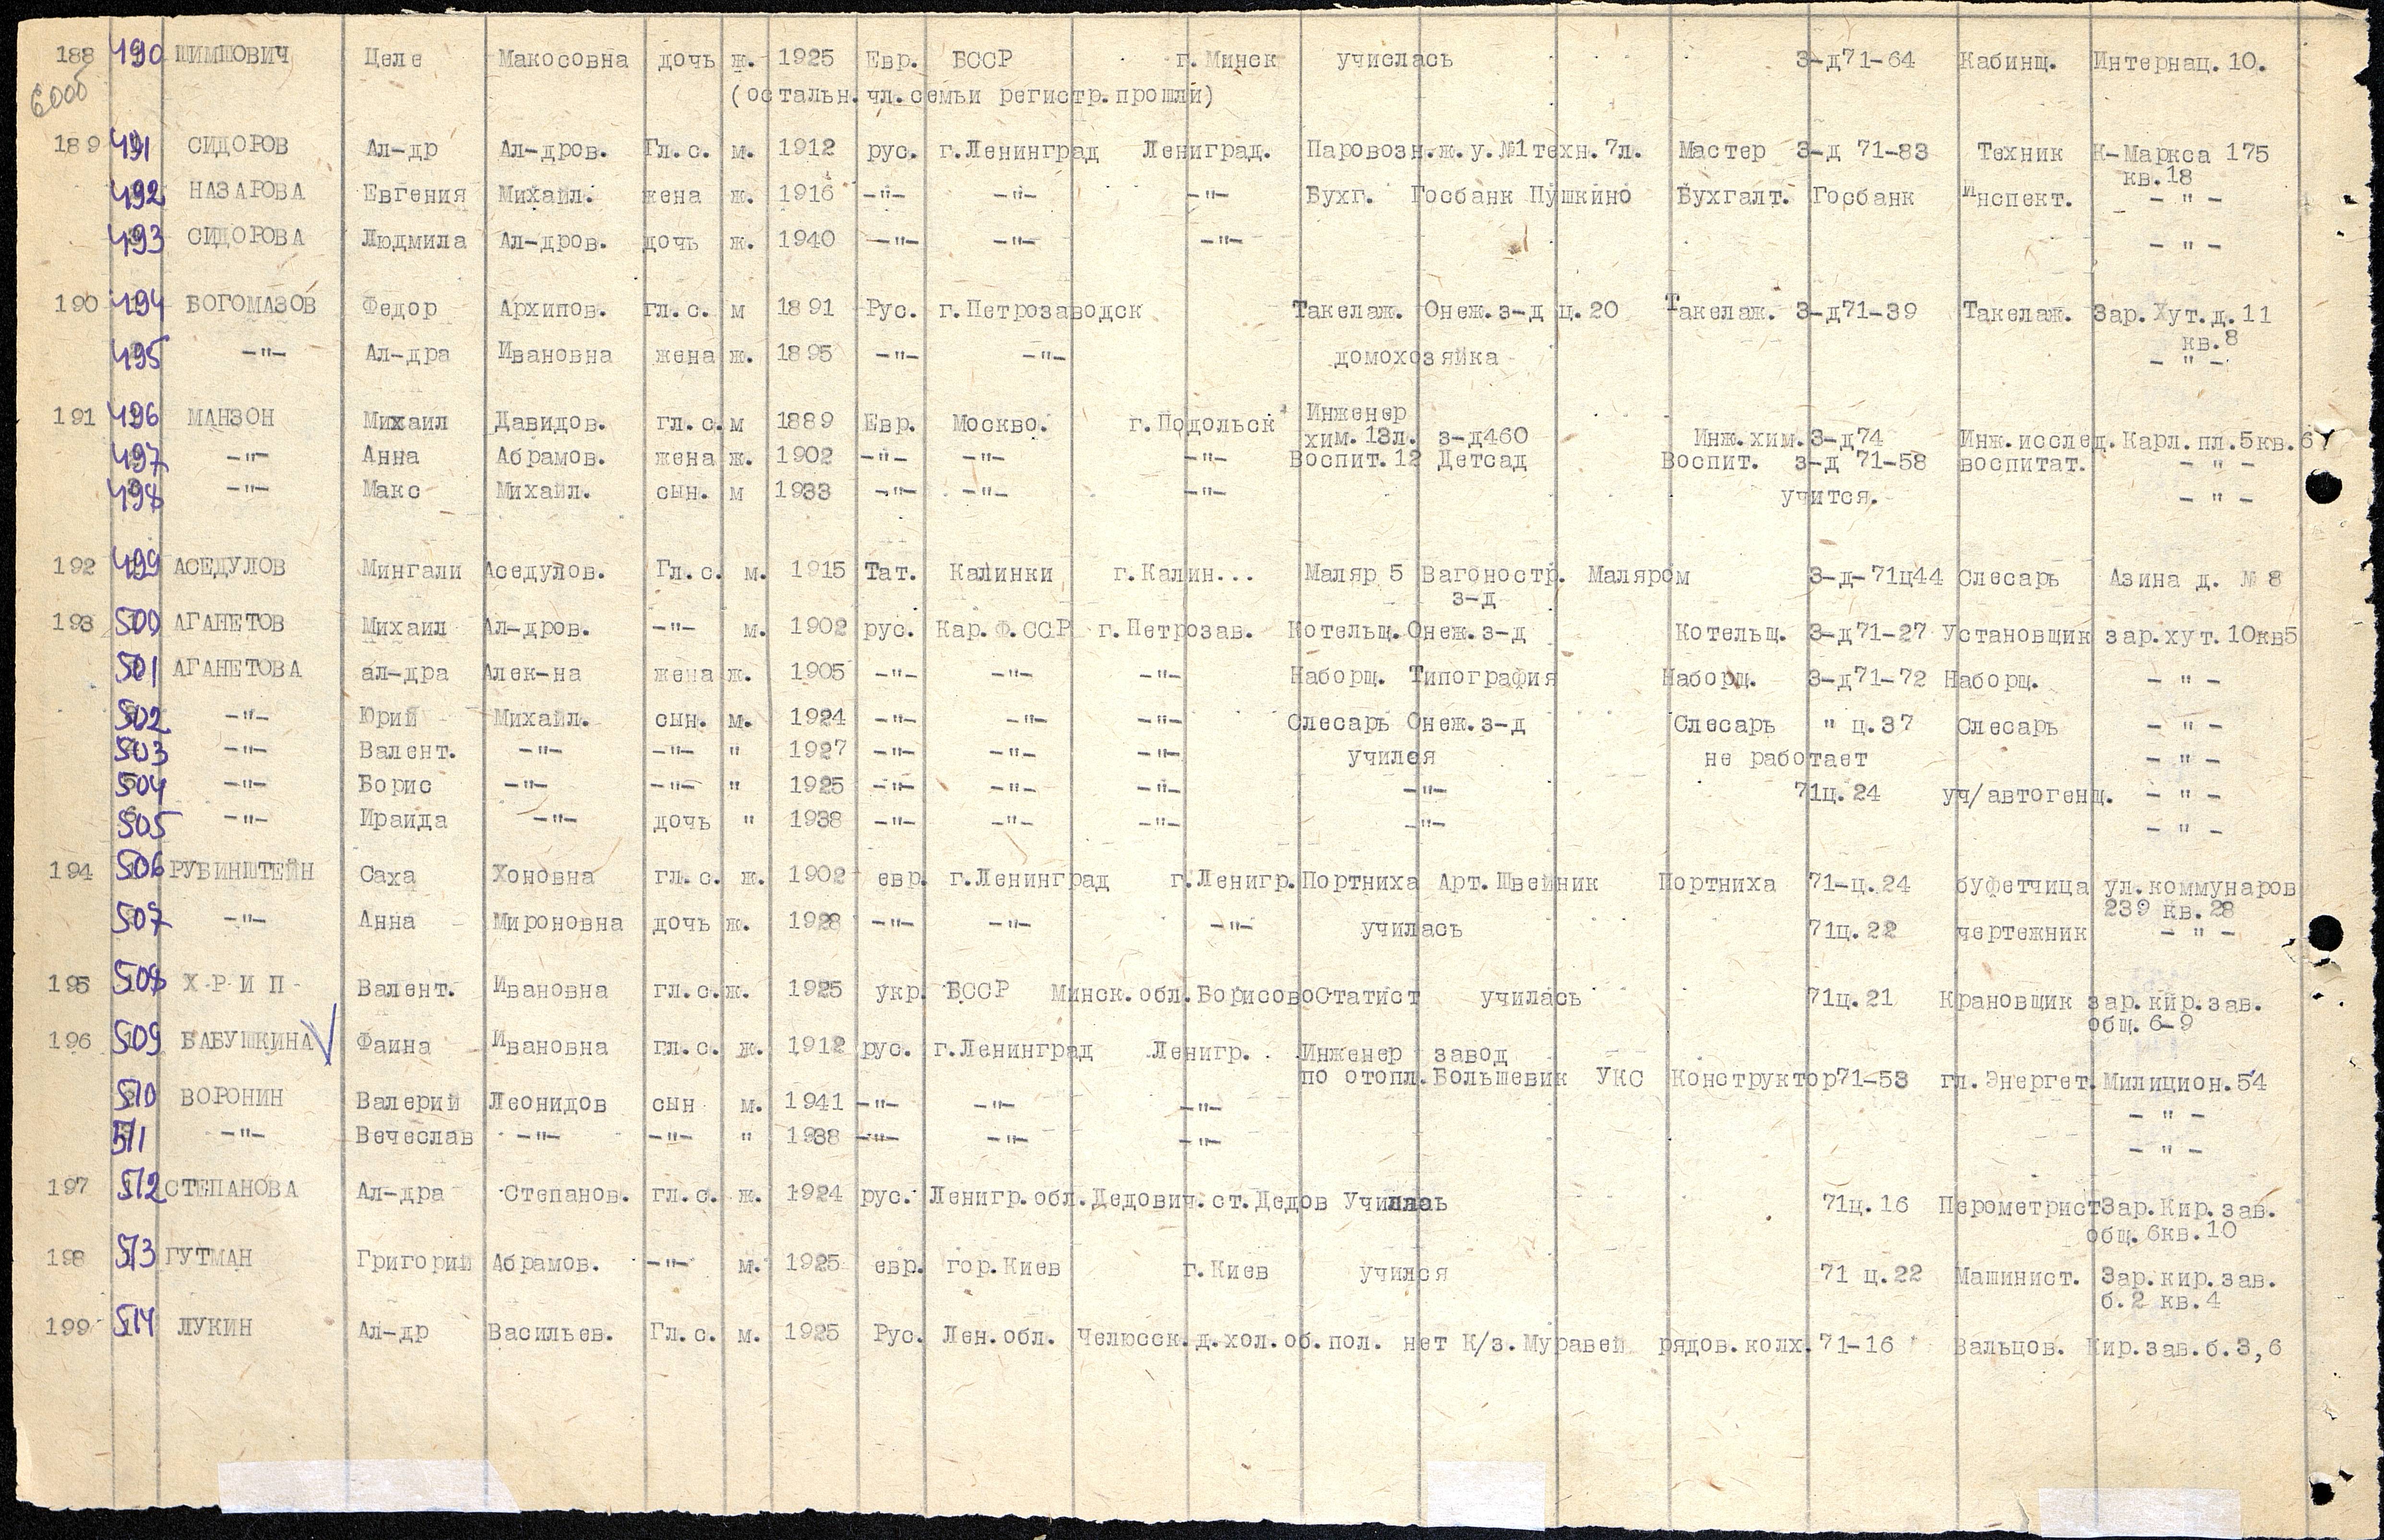 188 490 ШИМШОВИЧ Целе Макосовна дочь ж. 1925 Евр. БССР г. Минск училась З-д71-64 Кабинщ. Интернац. 10.
6000 (остальн. чл. семьи регистр. прошли)
189 491 СИДОРОВ Ал-др Ал-дров. Гл.с. м. 1912 рус. г.Ленинград Лениград. Паровозн.ж.у.№1техн.7л. Мастер З-д 71-83 Техник К-Маркса 175
кв.18
492 НАЗАРОВА Евгения Михайл. жена ж. 1916 -"- -"- -"- Бухг. Госбанк Пушкино Бухгалт. Госбанк Инспект. - " -
493 СИДОРОВА Людмила Ал-дров. дочь ж. 1940 -"- -"- -"- - " -
190 494 БОГОМАЗОВ Федор Архипов. гл.с. м 1891 Рус. г.Петрозаводск Такелаж. Онеж.з-д ц.20 Такелаж. З-д71-39 Такелаж. Зар.Хут.д.11
кв.8
495 -"- Ал-дра Ивановна жена ж. 1895 -"- -"- домохозяйка - " -
191 496 МАНЗОН Михаил Давидов. гл.с. м 1889 Евр. Москво. г.Подольск Инженер
хим. 13л. з-д460 Инж.хим. З-д74 Инж.исслед. Карл.пл.5кв.6
497 -"- Анна Абрамов. жена ж. 1902 -"- -"- -"- Воспит.12 Детсад Воспит. з-д 71-58 воспитат. - " -
498 -"- Макс Михайл. сын. м 1933 -"- -"- -"- учится. - " -
192 499 АСЕДУЛОВ Мингали Аседулов. Гл.с. м. 1915 Тат. Калинки г.Калин... Маляр 5 Вагоностр. Маляром З-д-71ц44 Слесарь Азина д. № 8
з-д
193 500 АГАПЕТОВ Михаил Ал-дров. -"- м. 1902 рус. Кар.Ф.ССР г.Петрозав. Котельщ. Онеж.з-д Котельщ. З-д71-27 Установщик зар.хут.10кв5
501 АГАПЕТОВА ал-дра Алек-на жена ж. 1905 -"- -"- -"- Наборщ. Типография Наборщ. З-д71-72 Наборщ. - " -
502 -"- Юрий Михайл. сын. м. 1924 -"- -"- -"- Слесарь Онеж.з-д Слесарь " ц.37 Слесарь - " -
503 -"- Валент. -"- -"- " 1927 -"- -"- -"- учился не работает - " -
504 -"- Борис -"- -"- " 1925 -"- -"- -"- -"- 71ц.24 уч/автогенщ. - " -
505 -"- Ираида -"- дочь " 1938 -"- -"- -"- -"- - " -
194 506 РУБИНШТЕЙН Саха Хоновна гл.с. ж. 1902 евр. г.Ленинград г.Ленигр. Портниха Арт.Швейник Портниха 71-ц.24 буфетчица ул.коммунаров
239 кв.28
507 -"- Анна Мироновна дочь ж. 1928 -"- -"- -"- училась 71ц.22 чертежник - " -
195 508 Х Р И П Валент. Ивановна гл.с. ж. 1925 укр. БССР Минск.обл.Борисово Статист училась 71ц.21 Крановщик зар.кир.зав.
общ.6-9
196 509 БАБУШКИНА Фаина Ивановна гл.с. ж. 1912 рус. г.Ленинград Ленигр. Инженер завод
по отопл. Большевик УКС Конструктор71-53 гл.Энергет. Милицион.54
510 ВОРОНИН Валерий Леонидов сын м. 1941 -"- -"- -"- - " -
511 -"- Вечеслав -"- -"- " 1938 -"- -"- -"- - " -
197 512 СТЕПАНОВА Ал-дра Степанов. гл.с. ж. 1924 рус. Ленигр.обл.Дедович.ст.Дедов Училась 71ц.16 Перометрист Зар.Кир.зав.
общ.6кв.10
198 513 ГУТМАН Григорий Абрамов. -"- м. 1925 евр. гор.Киев г.Киев учился 71 ц.22 Машинист. Зар.кир.зав.
б.2 кв.4
199 514 ЛУКИН Ал-др Васильев. Гл.с. м. 1925 Рус. Лен.обл. Челюсск.д.хол.об.пол. нет К/з.Муравей рядов.колх. 71-16 Вальцов. Кир.зав.б.3,6